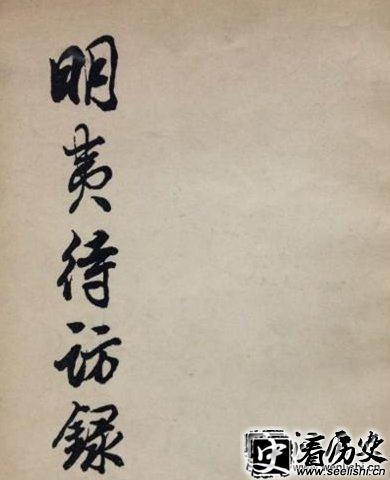 明夷待访録
史看历史
www.seelishi.cn